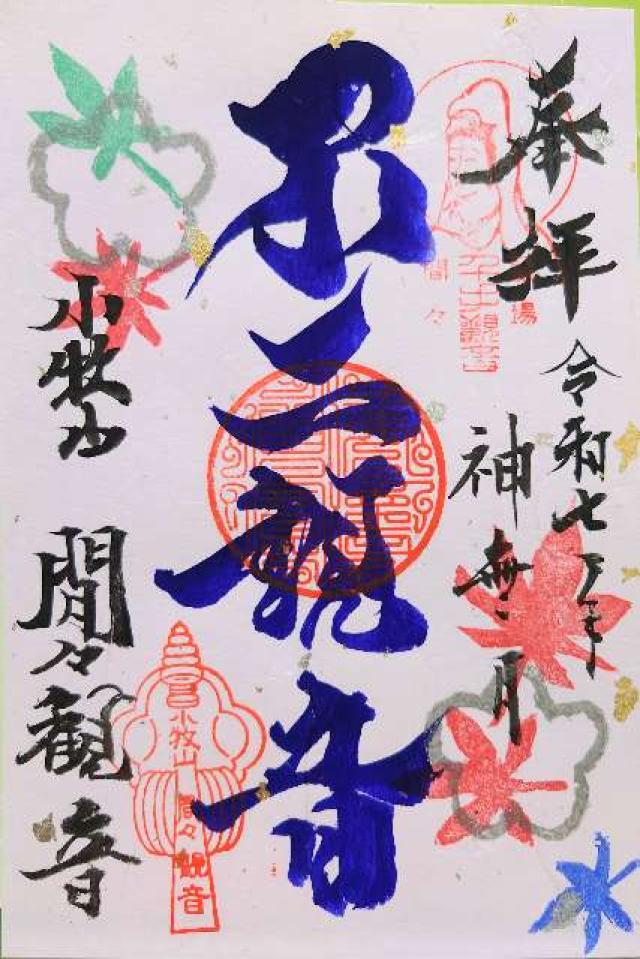 奉拝
令和七年
神無月
不二観音
小牧山
間々観音
場
千手観音
間々
小牧山
間々
観音